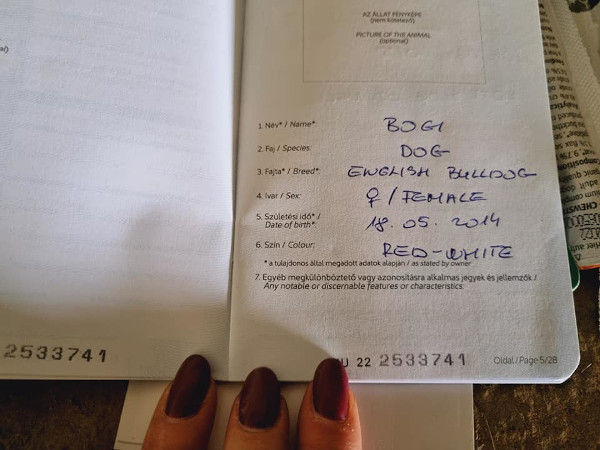 AZ ÁLLAT FÉNYKÉPE
(nem kötelező)
PICTURE OF THE ANIMAL
(optional)
1. Név* / Name*: BOGI
2. Faj / Species: DOG
3. Fajta* / Breed*: ENGLISH BULLDOG
4. Ivar / Sex: ♀ / FEMALE
5. Születési idő* /
Date of birth*: 18. 05. 2014
6. Szín / Colour: RED-WHITE
* a tulajdonos által megadott adatok alapján / as stated by owner
7. Egyéb megkülönböztető vagy azonosításra alkalmas jegyek és jellemzők /
Any notable or discernable features or characteristics:
2533741
22 2533741 Oldal / Page 5/28